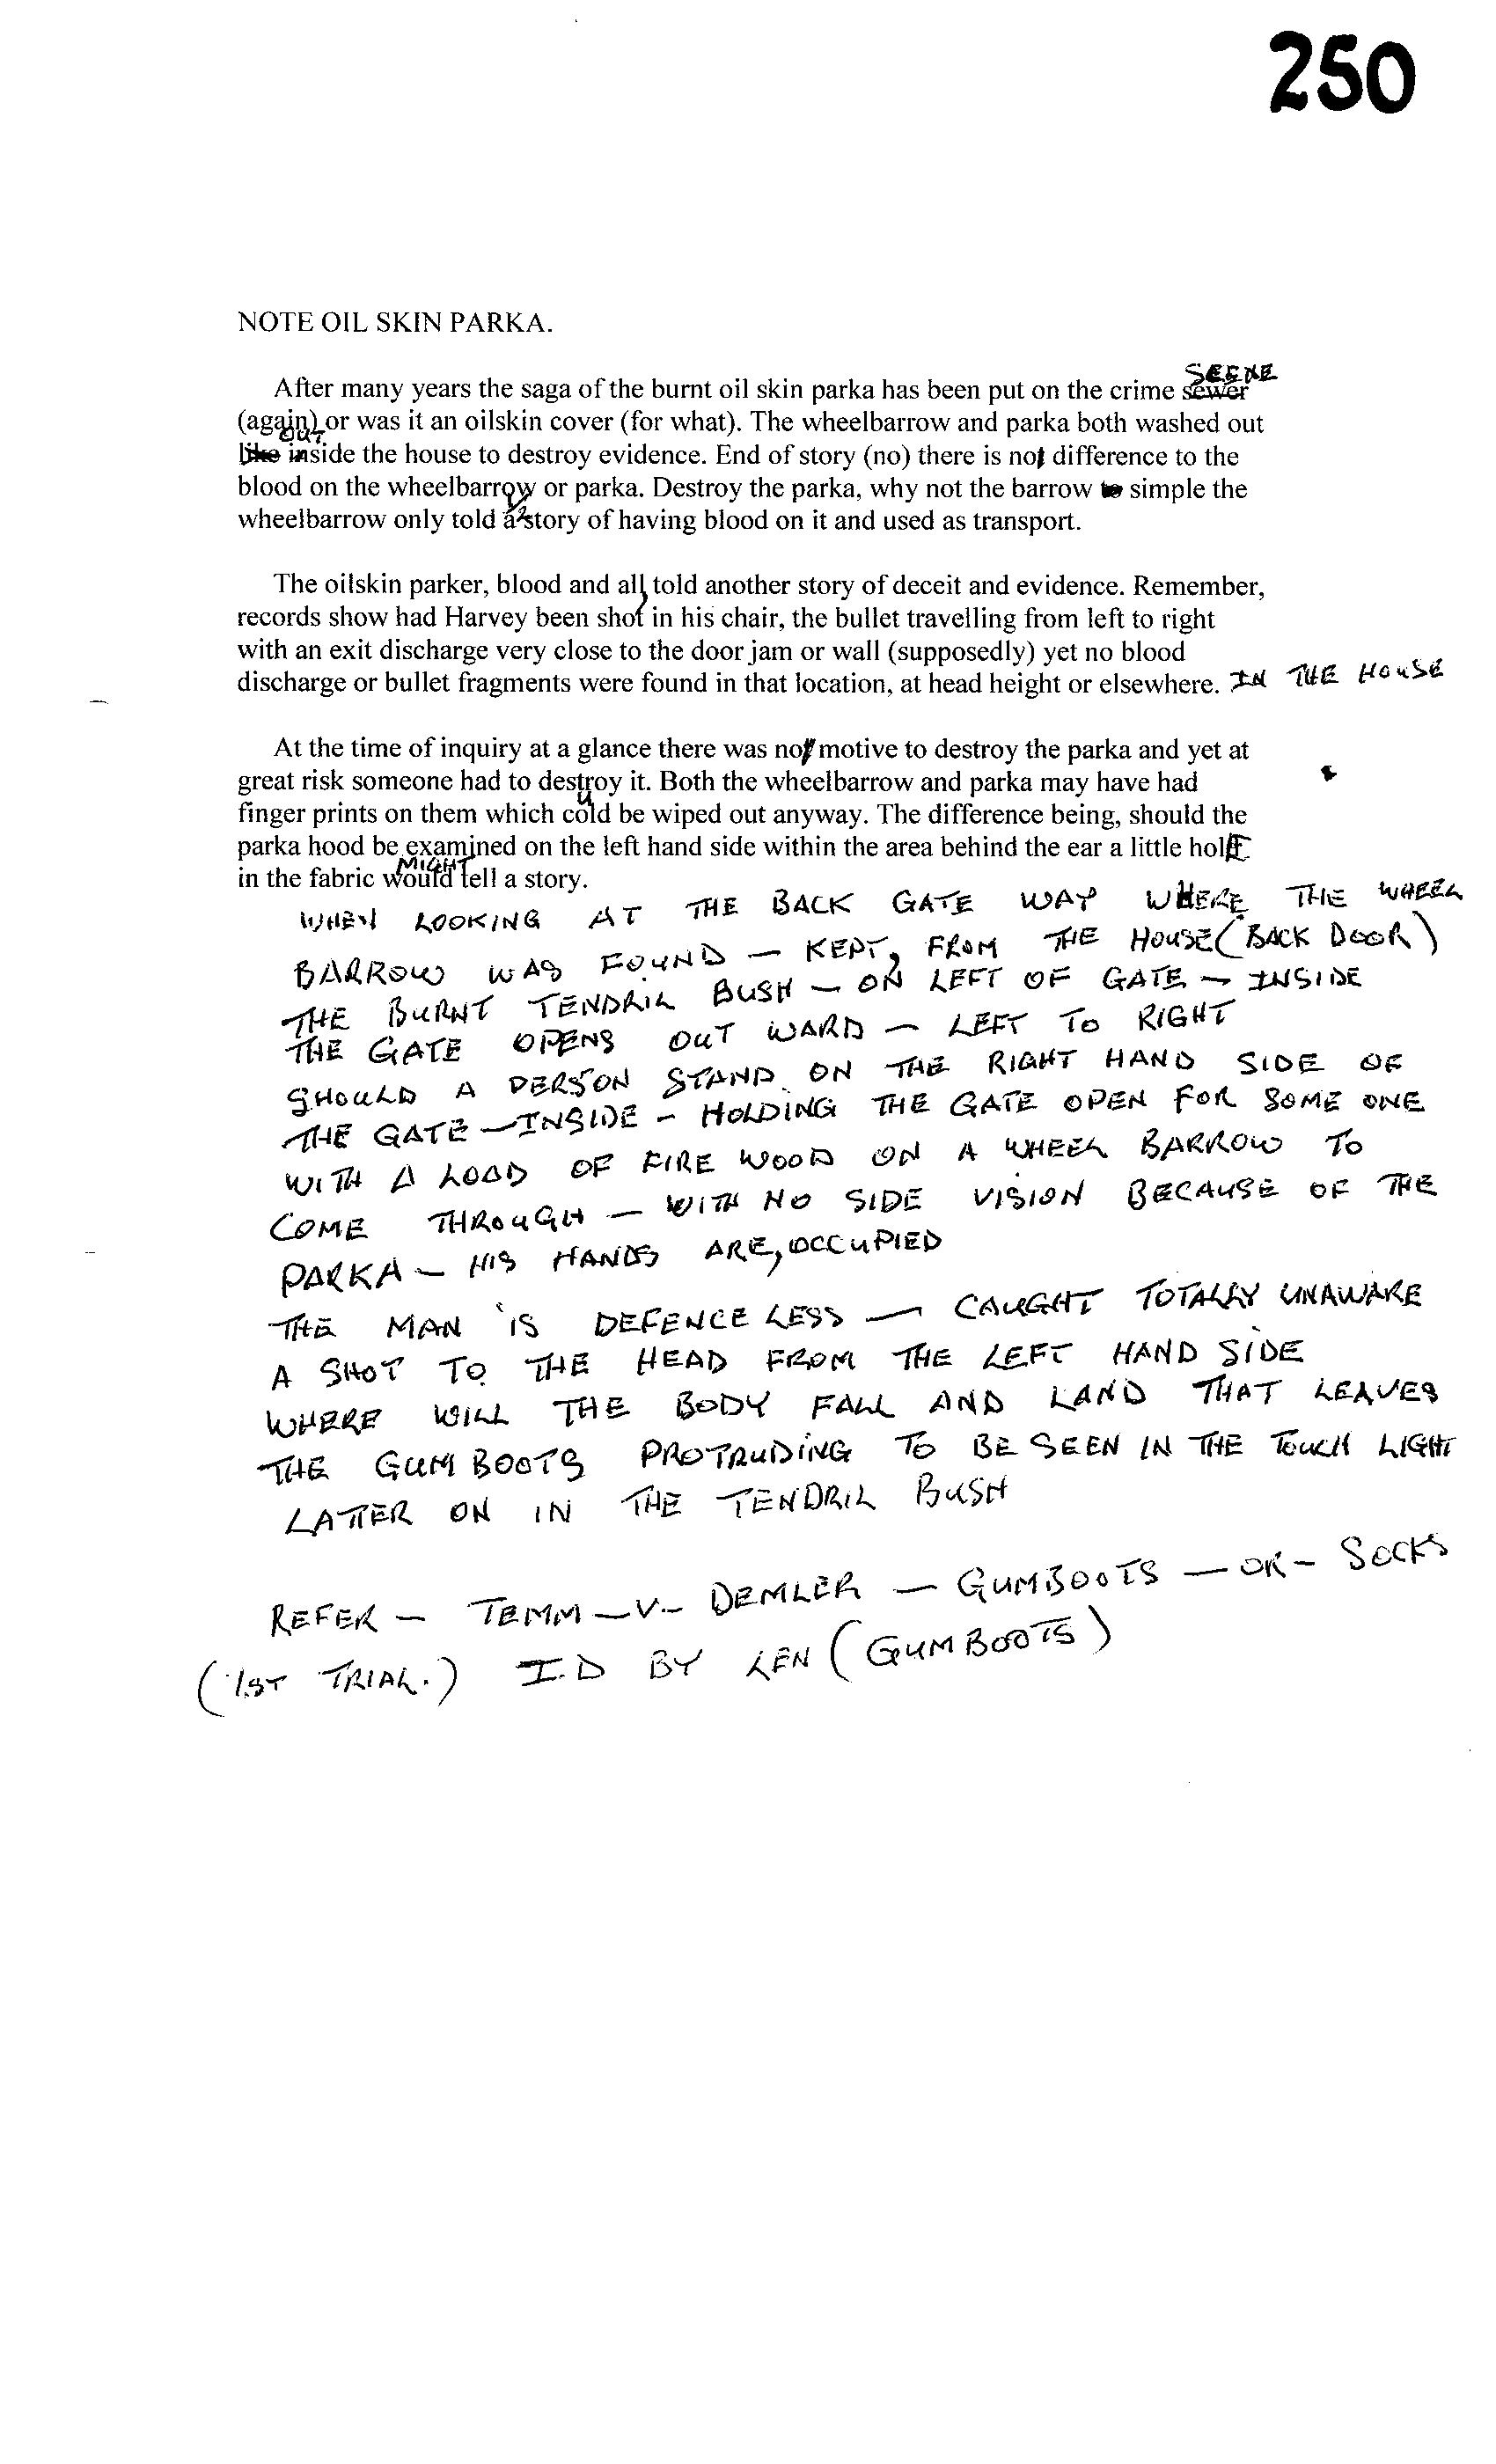 250
NOTE OIL SKIN PARKA.
After many years the saga of the burnt oil skin parka has been put on the crime sewer SEENE
(again) or was it an oilskin cover (for what). The wheelbarrow and parka both washed out
like OUT inside the house to destroy evidence. End of story (no) there is not difference to the
blood on the wheelbarrow or parka. Destroy the parka, why not the barrow to simple the
wheelbarrow only told a story of having blood on it and used as transport.
The oilskin parker, blood and all, told another story of deceit and evidence. Remember,
records show had Harvey been shot in his chair, the bullet travelling from left to right
with an exit discharge very close to the door jam or wall (supposedly) yet no blood
discharge or bullet fragments were found in that location, at head height or elsewhere. IN THE HOUSE
At the time of inquiry at a glance there was not motive to destroy the parka and yet at
great risk someone had to destroy it. Both the wheelbarrow and parka may have had
finger prints on them which could be wiped out anyway. The difference being, should the
parka hood be examined on the left hand side within the area behind the ear a little holE
in the fabric would MIGHT tell a story.
WHEN LOOKING AT THE BACK GATE WAY WHERE THE WHEEL
BARROW WAS FOUND — KEPT, FROM THE HOUSE (BACK DOOR)
THE BURNT TENDRIL BUSH — ON LEFT OF GATE — INSIDE
THE GATE OPENS OUT WARD — LEFT TO RIGHT
SHOULD A PERSON STAND ON THE RIGHT HAND SIDE OF
THE GATE — INSIDE — HOLDING THE GATE OPEN FOR SOME ONE
WITH A LOAD OF FIRE WOOD ON A WHEEL BARROW TO
COME THROUGH — WITH NO SIDE VISION BECAUSE OF THE
PARKA — HIS HANDS ARE, OCCUPIED
THE MAN IS DEFENCE LESS — CAUGHT TOTALLY UNAWARE
A SHOT TO THE HEAD FROM THE LEFT HAND SIDE
WHERE WILL THE BODY FALL AND LAND THAT LEAVES
THE GUM BOOTS PROTRUDING TO BE SEEN IN THE TOUCH LIGHT
LATTER ON IN THE TENDRIL BUSH
REFER — TEMM — V — DEMLER — GUMBOOTS — OR — SOCKS
(1ST TRIAL.) I.D BY LEN (GUMBOOTS)